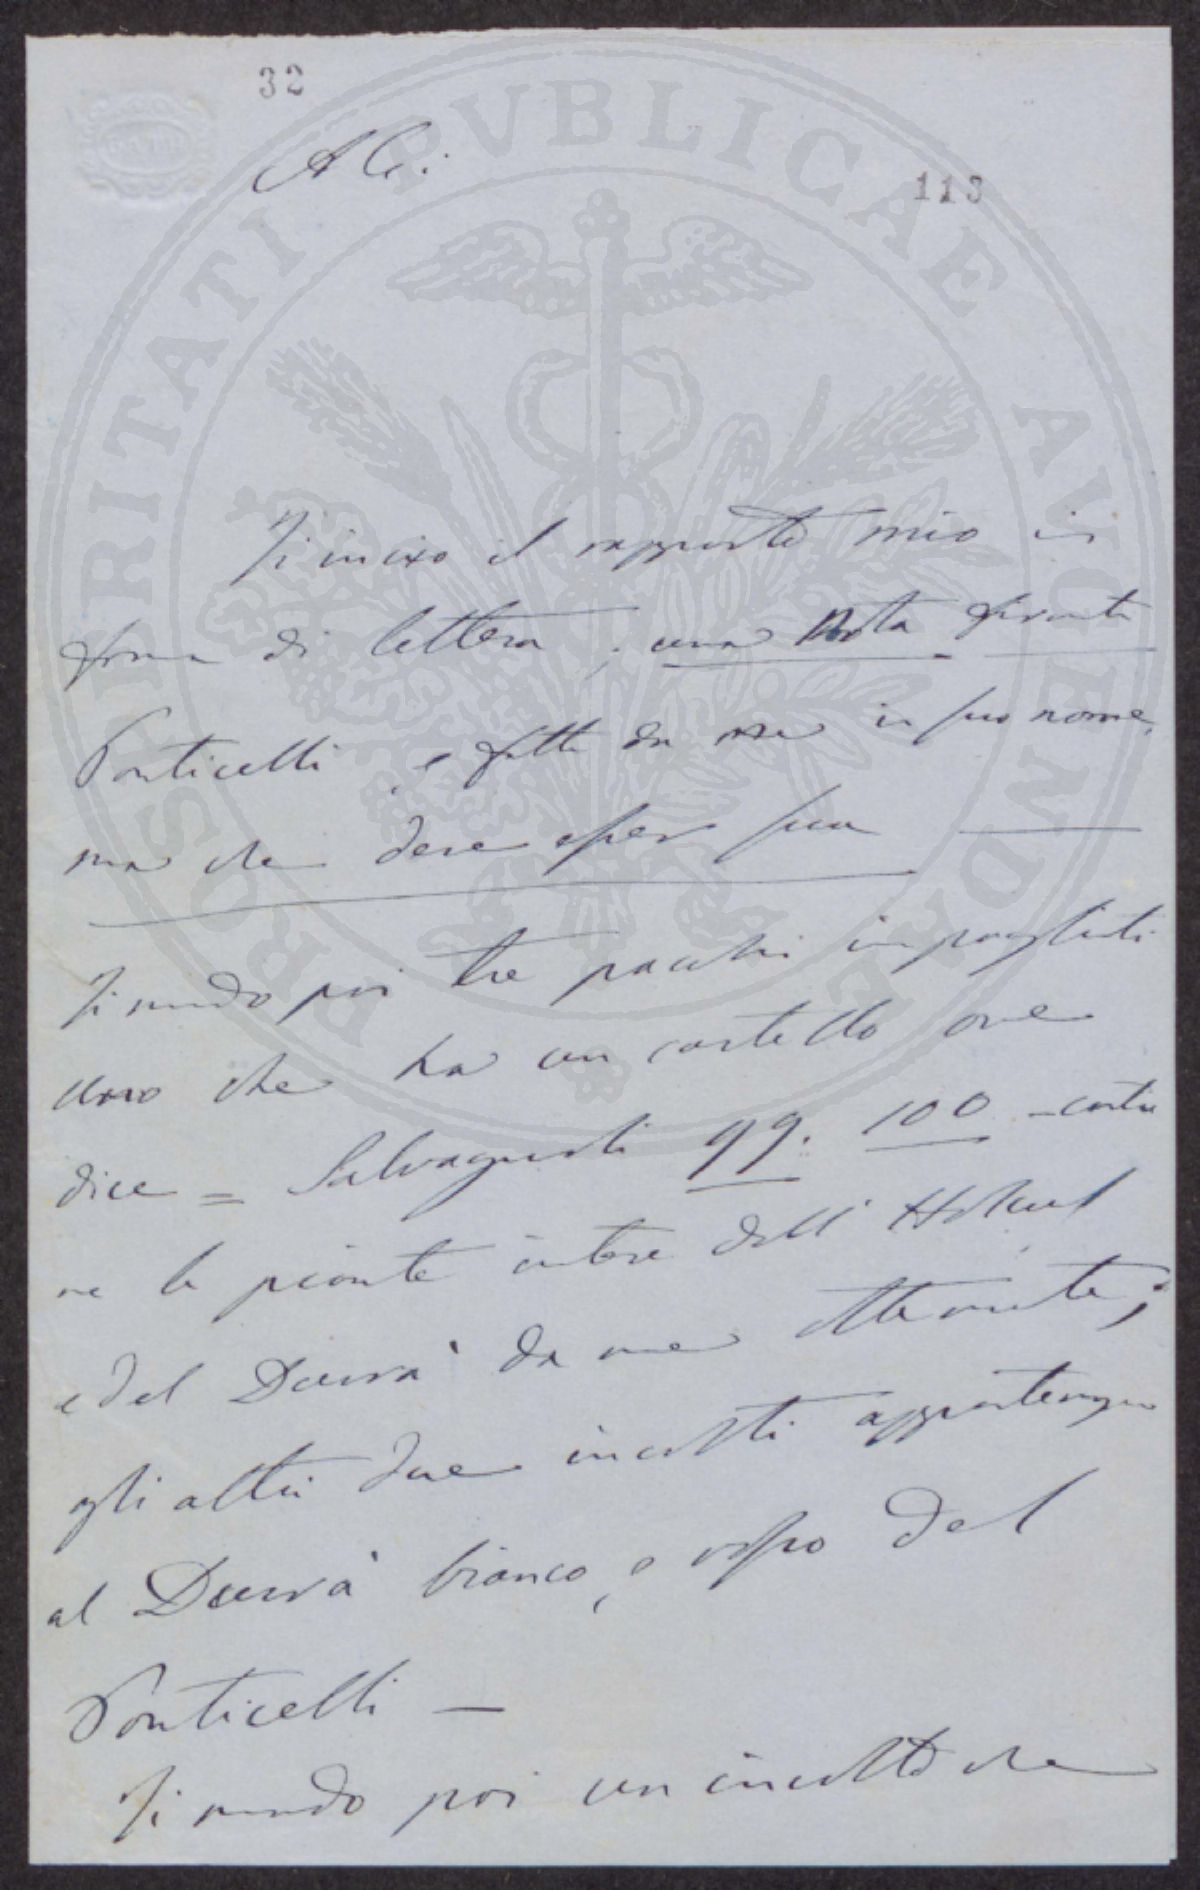 32
A C.
113
Ti invio il rapporto mio in
forma di lettera; una Nota firmata
Ponticelli e fatta da me in suo nome,
ma che deve esser sua
Ti mando poi tre pacchi impagliati
uno che ha un cartello ove
dice = Salvagnoli 99. 100 - contie
ne le piante intere dell' Holcus
e del Durra' da me ottenute;
gli altri due involti appartengono
al Durra' bianco, e rosso del
Ponticelli —
Ti mando poi un involto che
PROSPERITATI PVBLICAE AVGENDAE